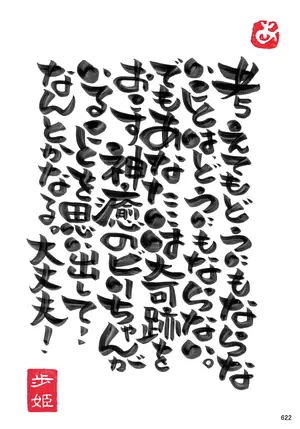 あ
考えてもどうにもならな
いことはどうにもならない。
でもあなたには奇跡を
おこす神癒のピーちゃんが
いることを思い出して!
なんとかなる。大丈夫!
歩姫
622